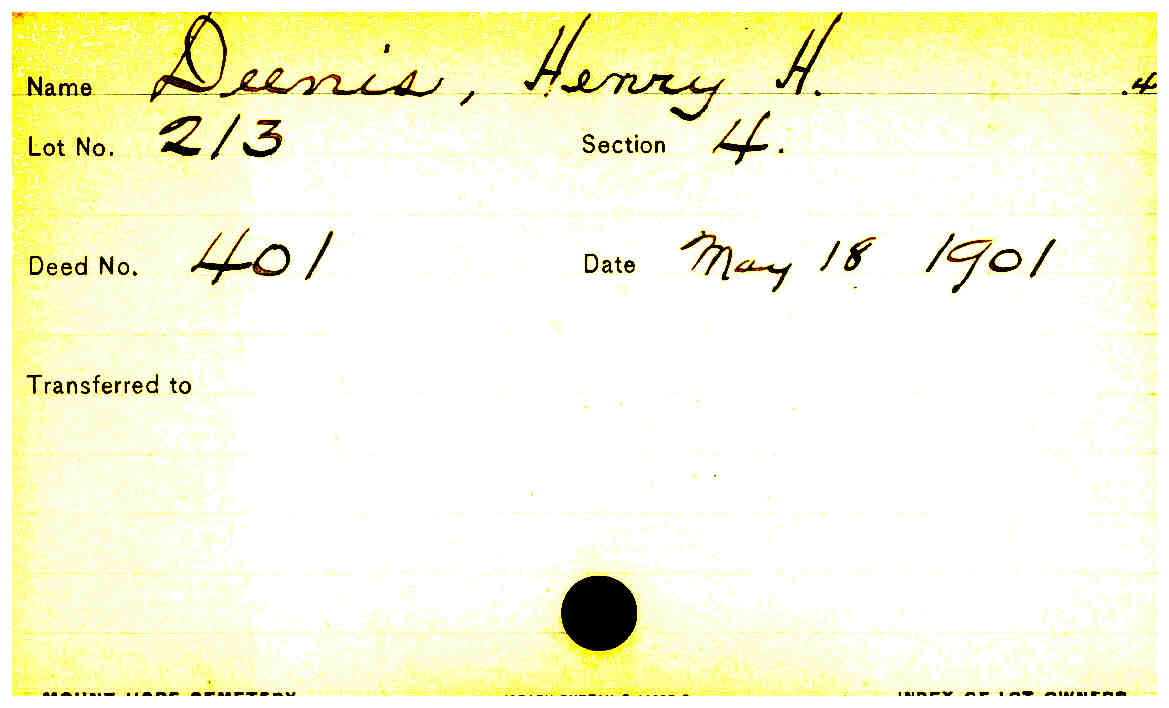 Name Deenis, Henry H. .4
Lot No. 213 Section 4.
Deed No. 401 Date May 18 1901
Transferred to
MOUNT HOPE CEMETERY INDEX OF LOT OWNERS